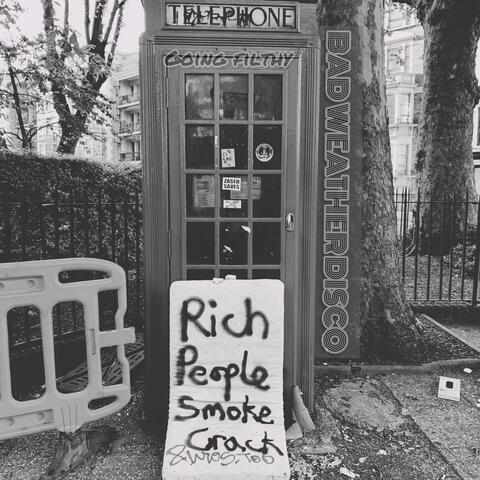 TELEPHONE
GOING FILTHY
BADWEATHERDISCO
ZASEN
SAVES
Rich
People
Smoke
Crack